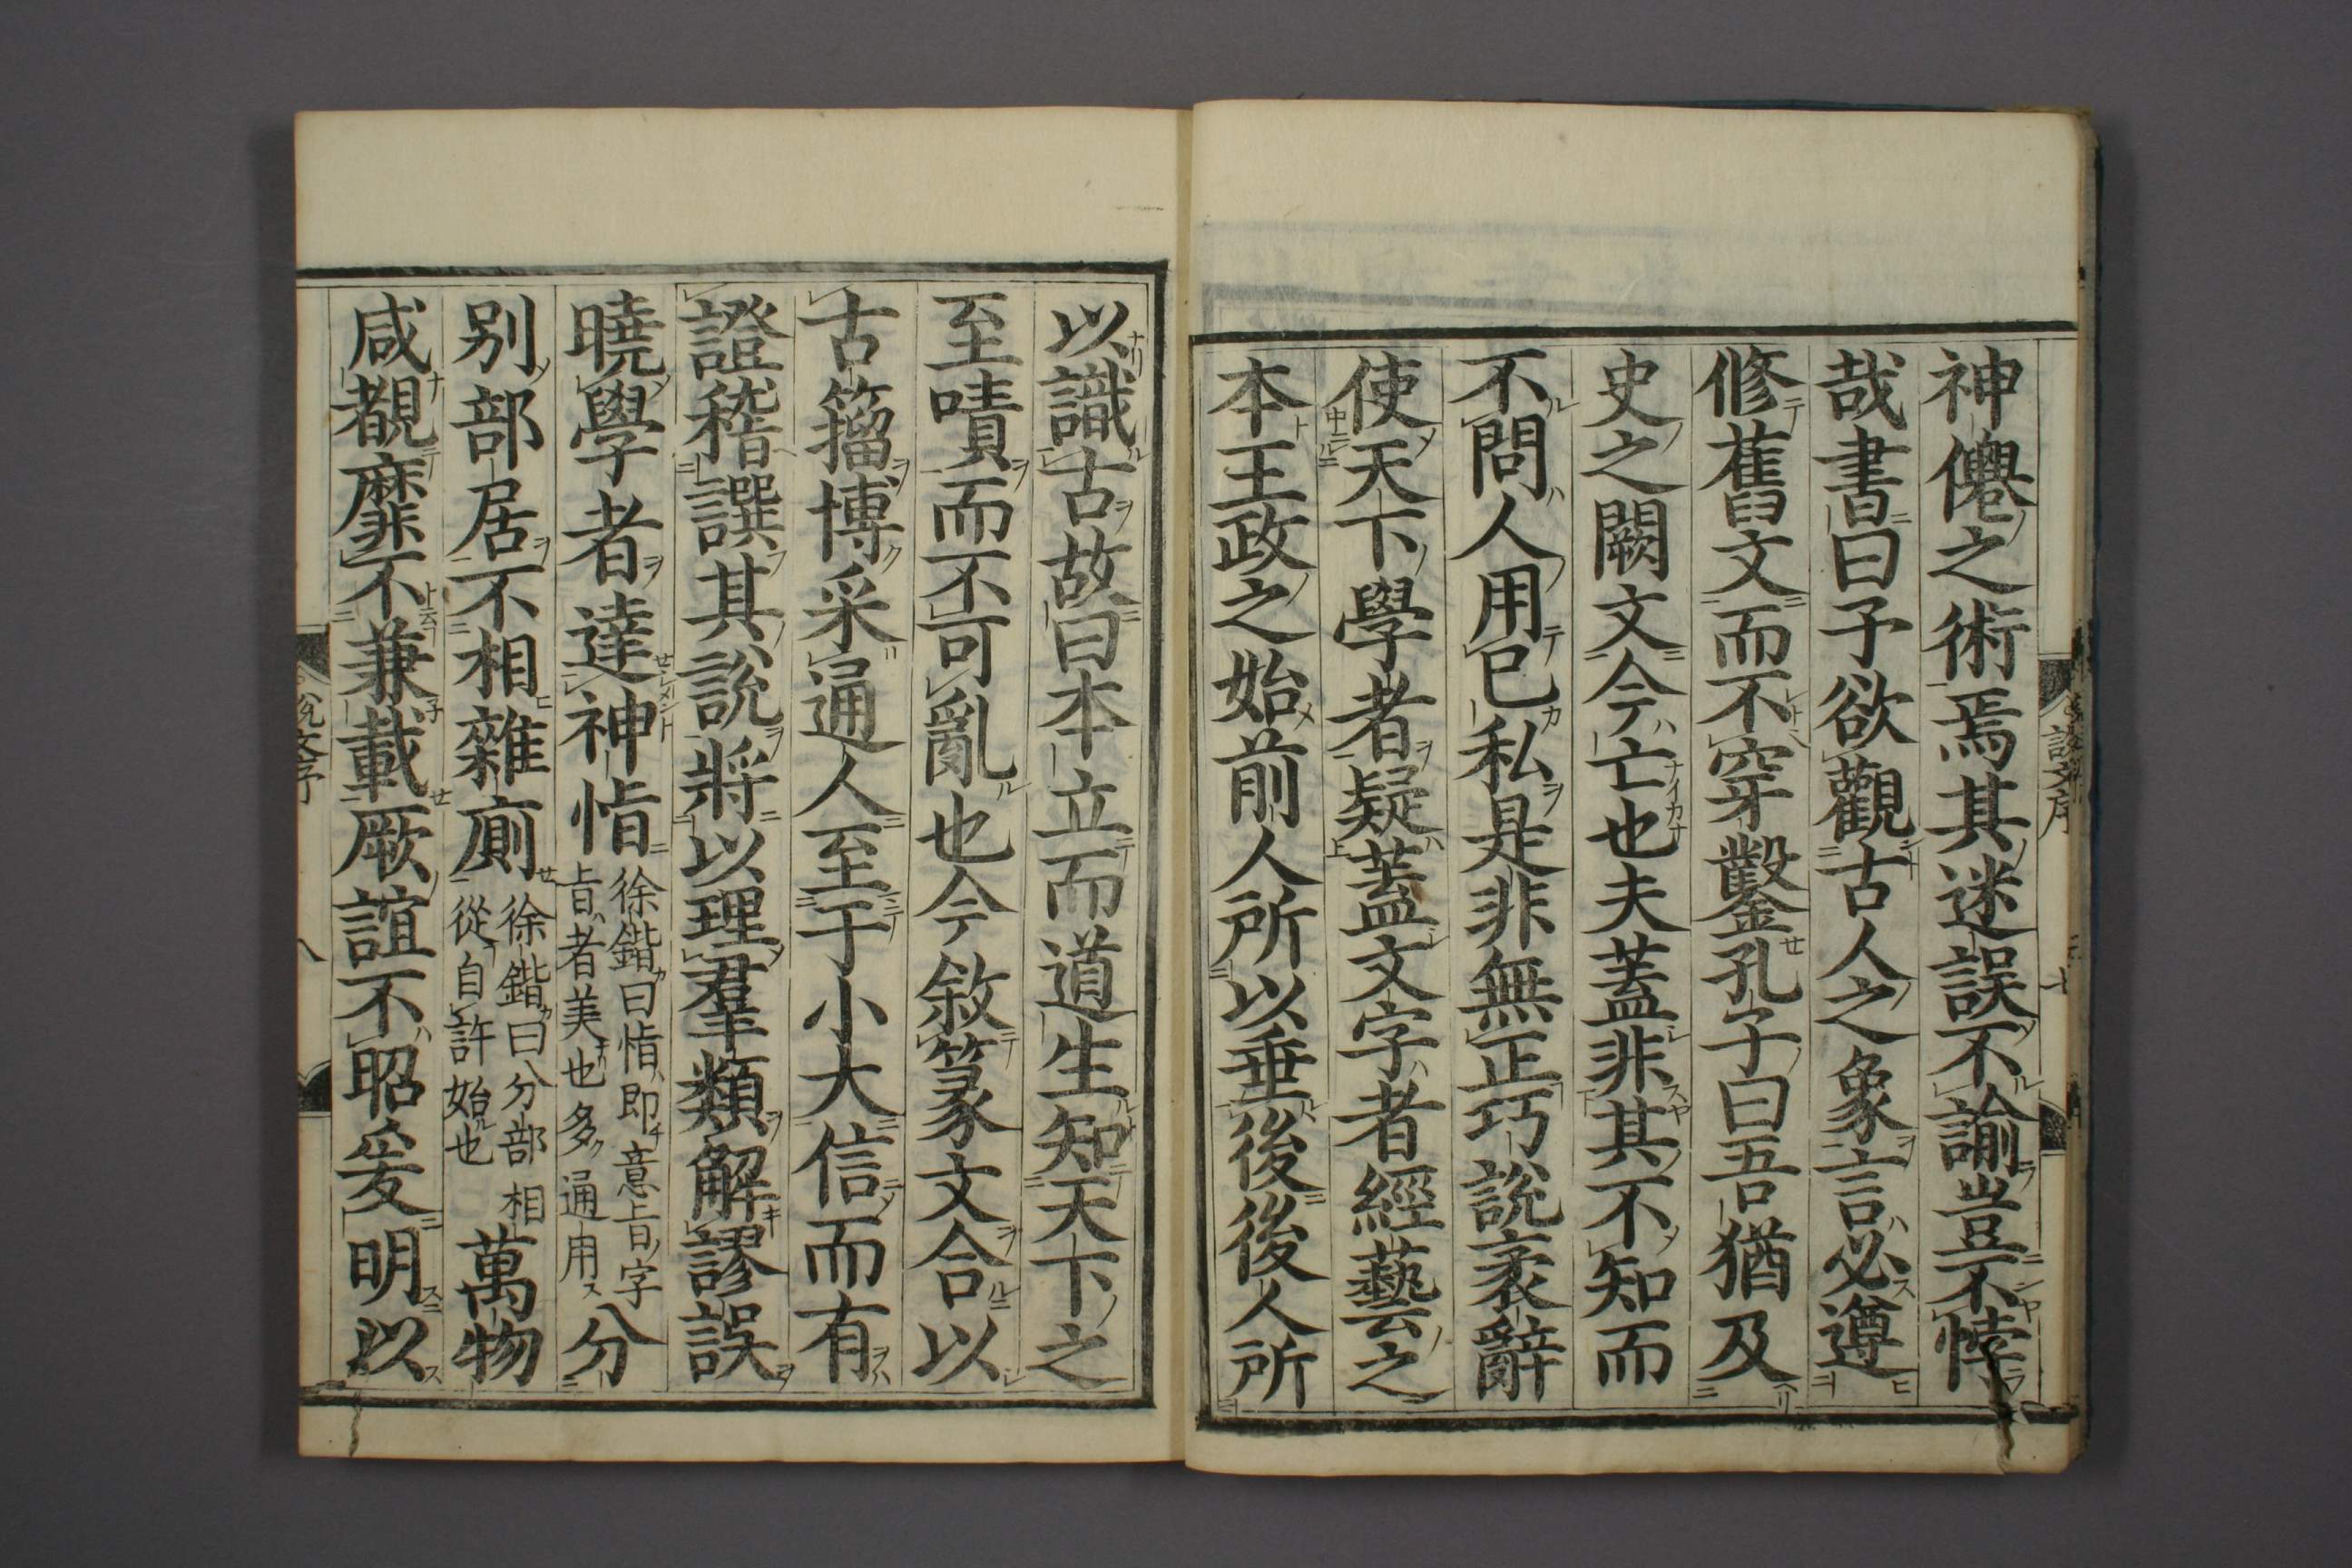 神僊之術焉其迷誤不諭豈不悖
哉書曰予欲觀古人之象言必遵
修舊文而不穿鑿孔子曰吾猶及
史之闕文今亡也夫蓋非其不知而
不問人用己私是非無正巧說衺辭
使天下學者疑蓋文字者經藝之
本王政之始前人所以垂後後人所
以識古故曰本立而道生知天下之
至嘖而不可亂也今敘篆文合以
古籀博采通人至于小大信而有
證稽譔其說將以理羣類解謬誤
曉學者達神恉徐鍇曰恉即意旨字
旨者美也多通用分
别部居不相雜廁徐鍇曰分部相
從自許始也萬物
咸覩靡不兼載厥誼不昭爰明以
說文序